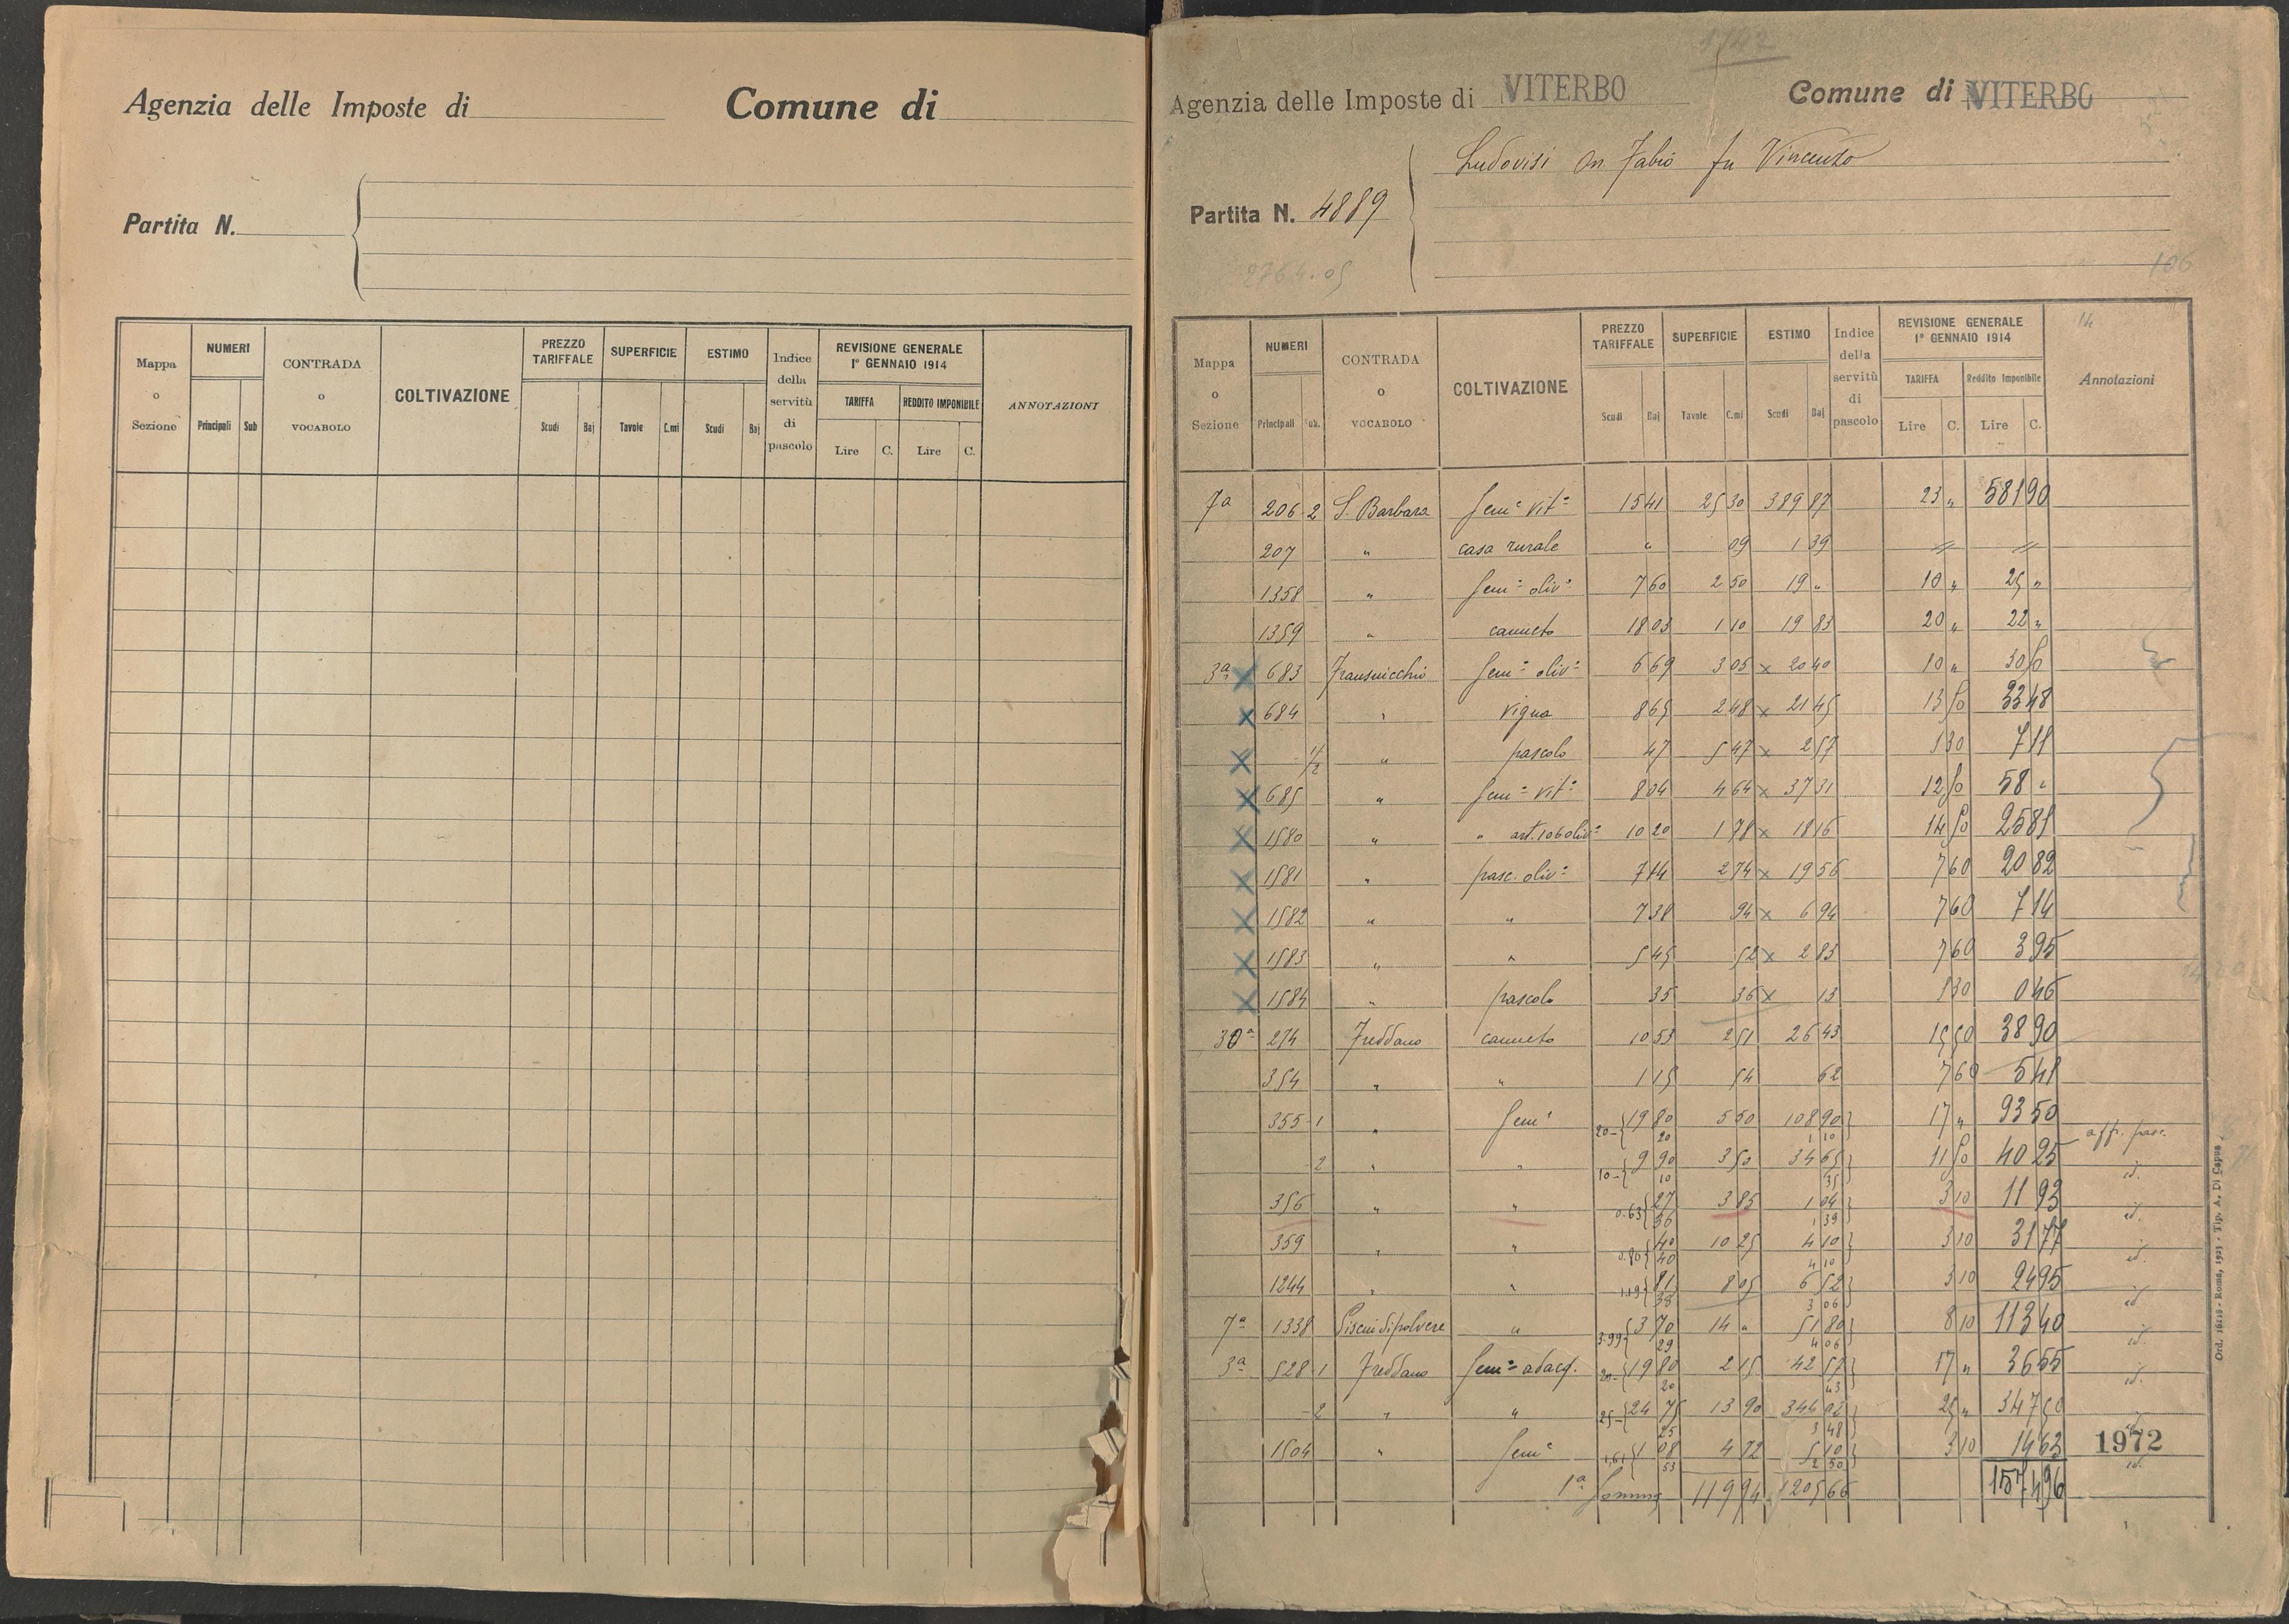 Agenzia delle Imposte di Comune di
Partita N.
Mappa o Sezione NUMERI Principali Sub CONTRADA o VOCABOLO COLTIVAZIONE PREZZO TARIFFALE Scudi Baj SUPERFICIE Tavole C.mi ESTIMO Scudi Baj Indice della servitù di pascolo REVISIONE GENERALE 1º GENNAIO 1914 TARIFFA Lire C. REDDITO IMPONIBILE Lire C. ANNOTAZIONI
Agenzia delle Imposte di VITERBO Comune di VITERBO
Ludovisi On. Fabio fu Vincenzo
Partita N. 4889
106
Mappa o Sezione NUMERI Principali Sub. CONTRADA o VOCABOLO COLTIVAZIONE PREZZO TARIFFALE Scudi Baj SUPERFICIE Tavole C.mi ESTIMO Scudi Baj Indice della servitù di pascolo REVISIONE GENERALE 1º GENNAIO 1914 TARIFFA Lire C. Reddito Imponibile Lire C. Annotazioni
7ª 206 2 S. Barbara Semº Vitº 15 41 25 30 389 87 23 " 581 90
207 " casa rurale " 09 1 39
1358 " Semº olivº 7 60 2 50 19 " 10 " 25 "
1359 " canneto 18 03 1 10 19 83 20 " 22 "
3ª x 683 Semº olivº 6 69 3 05 x 20 40 10 " 30 50
x 684 " vigna 8 65 2 48 x 21 45 13 50 33 48
x 1/2 " pascolo 47 5 47 x 2 57 1 30 7 11
x 685 " Semº Vitº 8 04 4 64 x 37 31 12 50 58 "
x 1580 " " art. 106 olivº 10 20 1 78 x 18 16 14 50 25 81
x 1581 " pasc. olivº 7 14 2 74 x 19 56 7 60 20 82
x 1582 " " 7 38 94 x 6 94 7 60 7 14
x 1583 " " 5 45 52 x 2 83 7 60 3 95
x 1584 " pascolo 35 36 x 13 1 30 0 46
30ª 274 Freddano canneto 10 53 2 51 26 43 15 50 38 90
354 " " 1 15 54 62 7 60 5 41
355 1 " Semº 20 - { 19 80 5 50 108 90 } 17 " 93 50 aff. pasc.
20 1 10
- 2 " " 10 - { 9 90 3 50 34 65 } 11 50 40 25 id.
10 35
356 " " 0.63 { 27 3 85 1 04 } 3 10 11 93 id.
36 1 39
359 " " 0.80 { 40 10 25 4 10 } 3 10 31 77 id.
40 4 10
1244 " " 1.19 { 81 8 05 6 52 } 3 10 24 95 id.
38 3 06
7ª 1338 " 3.99 { 3 70 14 " 51 80 } 8 10 113 40 id.
29 4 06
3ª 528 1 Freddano Semº adacq. 20 - { 19 80 2 15 42 57 } 17 " 36 55 id.
20 43
- 2 " " 25 - { 24 75 13 90 344 02 } 25 " 347 50 id.
25 3 48
1504 " Semº 1,61 { 1 08 4 72 5 10 } 3 10 14 63 id.
53 2 50
1972
1ª Somma 119 94 1205 66 1574 96
Ord. 16118 - Roma, 1923 - Tip. A. Di Capua